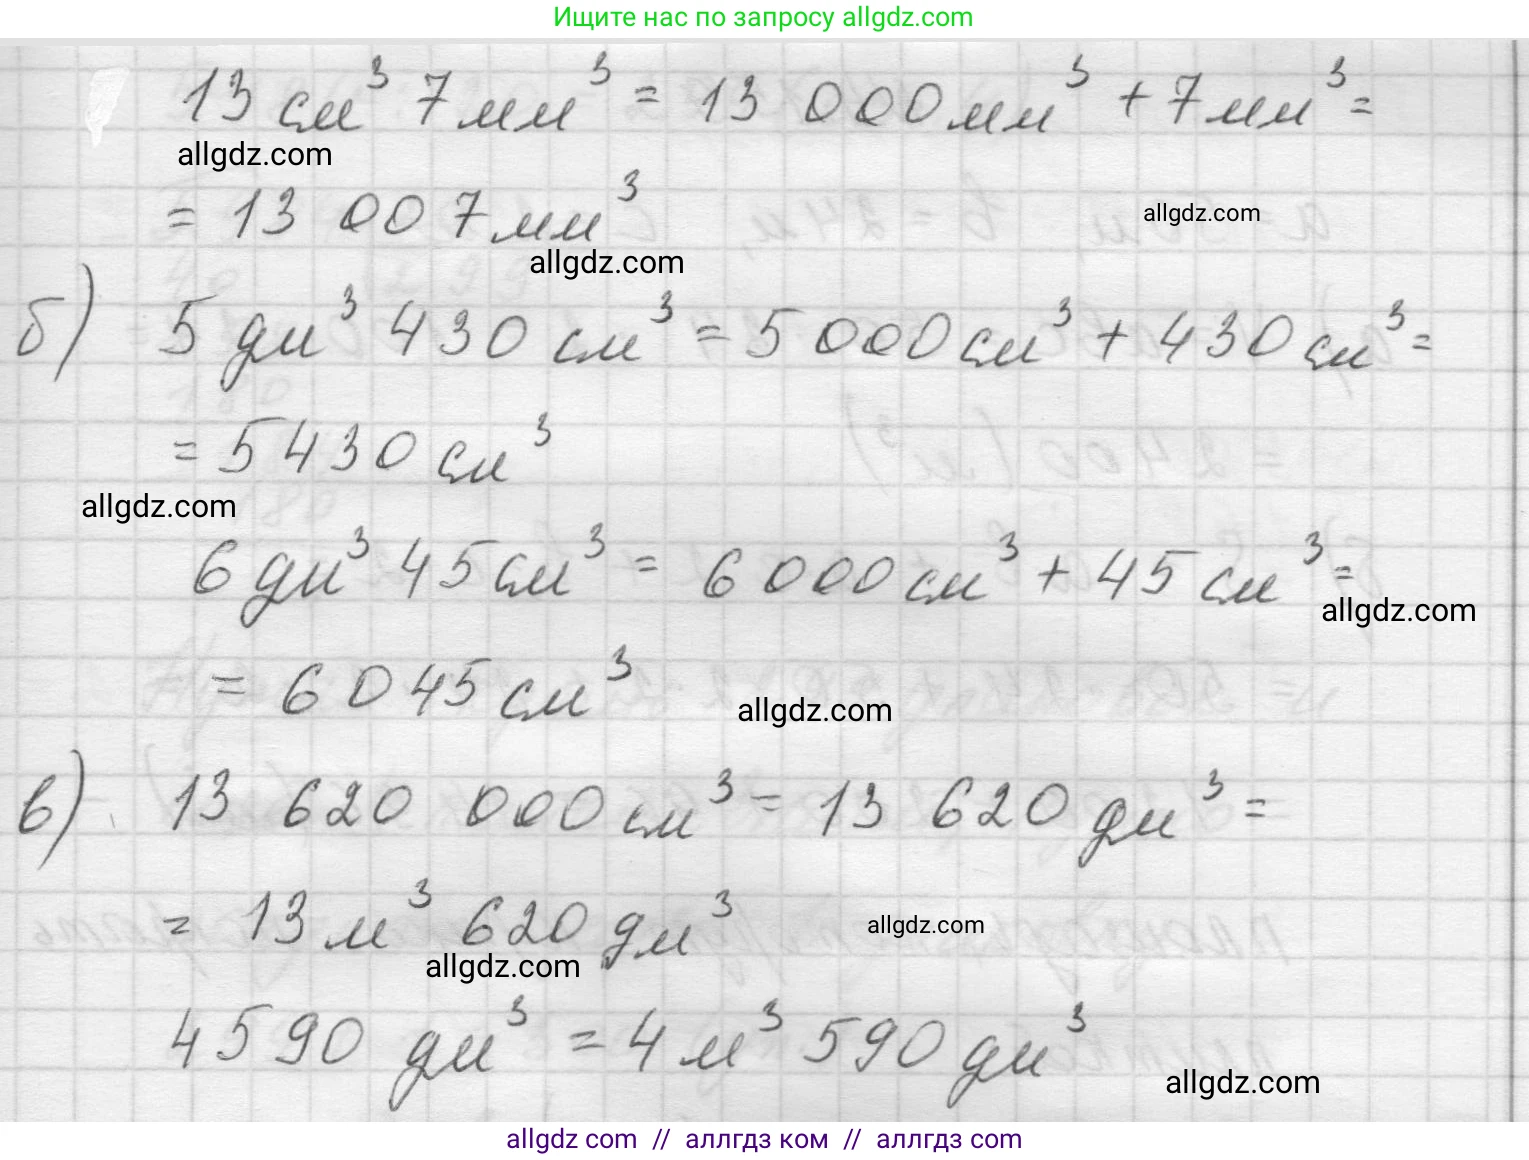 Ищите нас по запросу allgdz.com
13 см³ 7 мм³ = 13 000 мм³ + 7 мм³ =
allgdz.com
= 13 007 мм³
allgdz.com
allgdz.com
б) 5 дм³ 430 см³ = 5 000 см³ + 430 см³ =
= 5430 см³
allgdz.com
6 дм³ 45 см³ = 6 000 см³ + 45 см³ =
allgdz.com
= 6045 см³
allgdz.com
в) 13 620 000 см³ = 13 620 дм³ =
= 13 м³ 620 дм³
allgdz.com
allgdz.com
4590 дм³ = 4 м³ 590 дм³
allgdz.com
allgdz com // аллгдз ком // аллгдз com